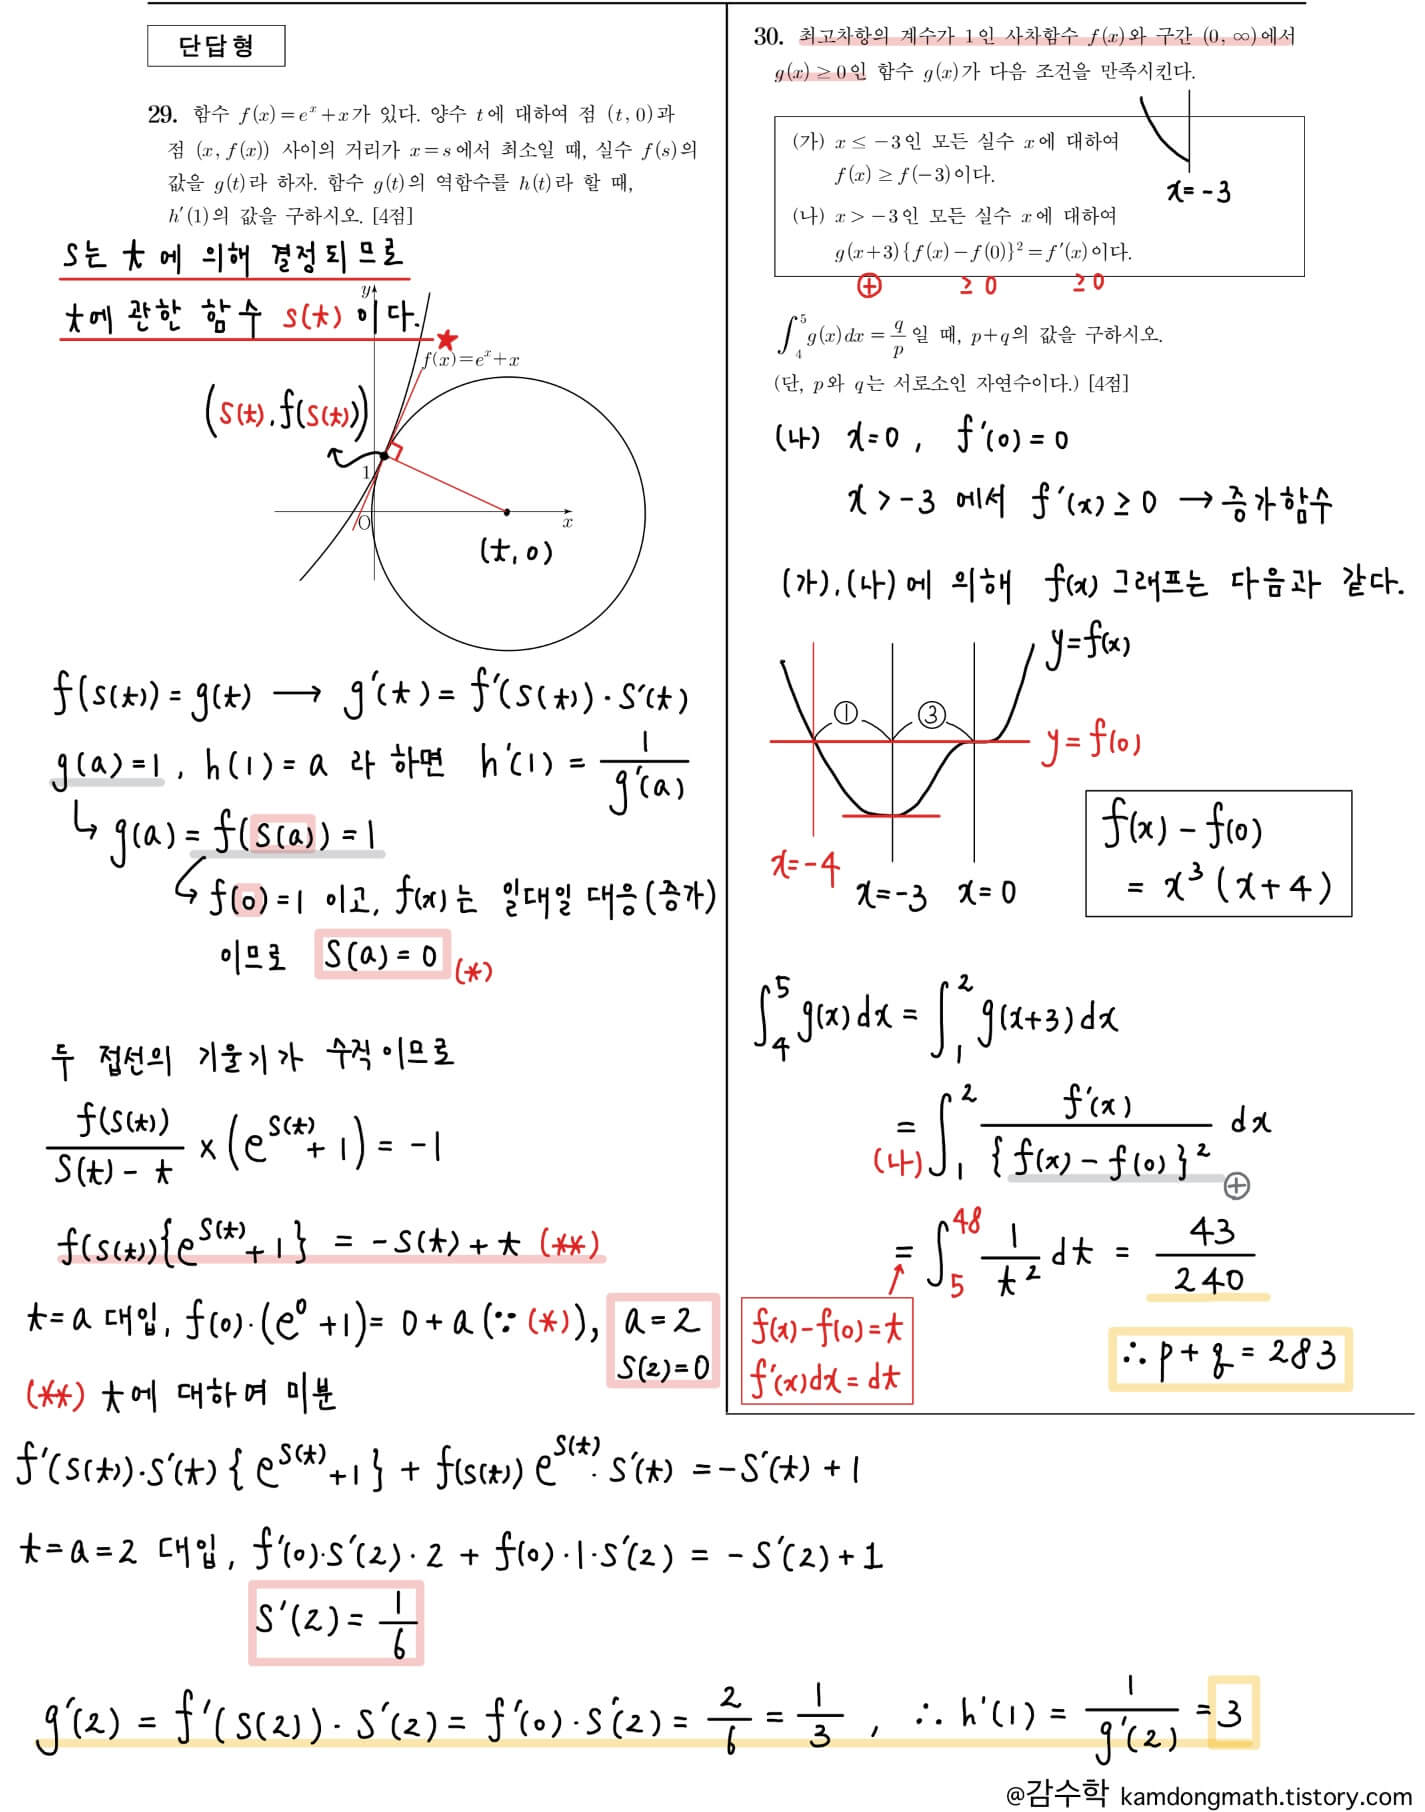 단답형
29. 함수 f(x)=eˣ+x가 있다. 양수 t에 대하여 점 (t, 0)과
점 (x, f(x)) 사이의 거리가 x=s에서 최소일 때, 실수 f(s)의
값을 g(t)라 하자. 함수 g(t)의 역함수를 h(t)라 할 때,
h′(1)의 값을 구하시오. [4점]
s는 t에 의해 결정되므로
t에 관한 함수 s(t)이다.
★
y
f(x)=eˣ+x
(s(t), f(s(t)))
1
O
x
(t, 0)
f(s(t)) = g(t) → g′(t) = f′(s(t))·s′(t)
g(a)=1, h(1)=a 라 하면 h′(1) = 1/g′(a)
↳ g(a) = f(s(a)) = 1
↳ f(0)=1 이고, f(x)는 일대일 대응(증가)
이므로 s(a)=0 (*)
두 접선의 기울기가 수직이므로
f(s(t))/(s(t)-t) × (e^{s(t)}+1) = -1
f(s(t)){e^{s(t)}+1} = -s(t)+t (**)
t=a 대입, f(0)·(e⁰+1)= 0+a (∵(*)), a=2
s(2)=0
(**) t에 대하여 미분
f′(s(t))·s′(t){e^{s(t)}+1} + f(s(t)) e^{s(t)}·s′(t) = -s′(t)+1
t=a=2 대입, f′(0)·s′(2)·2 + f(0)·1·s′(2) = -s′(2)+1
s′(2) = 1/6
g′(2) = f′(s(2))·s′(2) = f′(0)·s′(2) = 2/6 = 1/3, ∴ h′(1) = 1/g′(2) = 3
30. 최고차항의 계수가 1인 사차함수 f(x)와 구간 (0, ∞)에서
g(x) ≥ 0인 함수 g(x)가 다음 조건을 만족시킨다.
(가) x ≤ -3인 모든 실수 x에 대하여
f(x) ≥ f(-3)이다.
x=-3
(나) x > -3인 모든 실수 x에 대하여
g(x+3){f(x)-f(0)}²=f′(x)이다.
⊕ ≥0 ≥0
∫₄⁵ g(x)dx = q/p 일 때, p+q의 값을 구하시오.
(단, p와 q는 서로소인 자연수이다.) [4점]
(나) x=0, f′(0)=0
x>-3 에서 f′(x)≥0 → 증가함수
(가),(나)에 의해 f(x) 그래프는 다음과 같다.
y=f(x)
① ③
y=f(0)
x=-4
x=-3 x=0
f(x)-f(0)
= x³(x+4)
∫₄⁵ g(x)dx = ∫₁² g(x+3)dx
= (나) ∫₁² f′(x)/{f(x)-f(0)}² dx
⊕
= ∫₅⁴⁸ 1/t² dt = 43/240
f(x)-f(0)=t
f′(x)dx=dt
∴ p+q=283
@감수학 kamdongmath.tistory.com